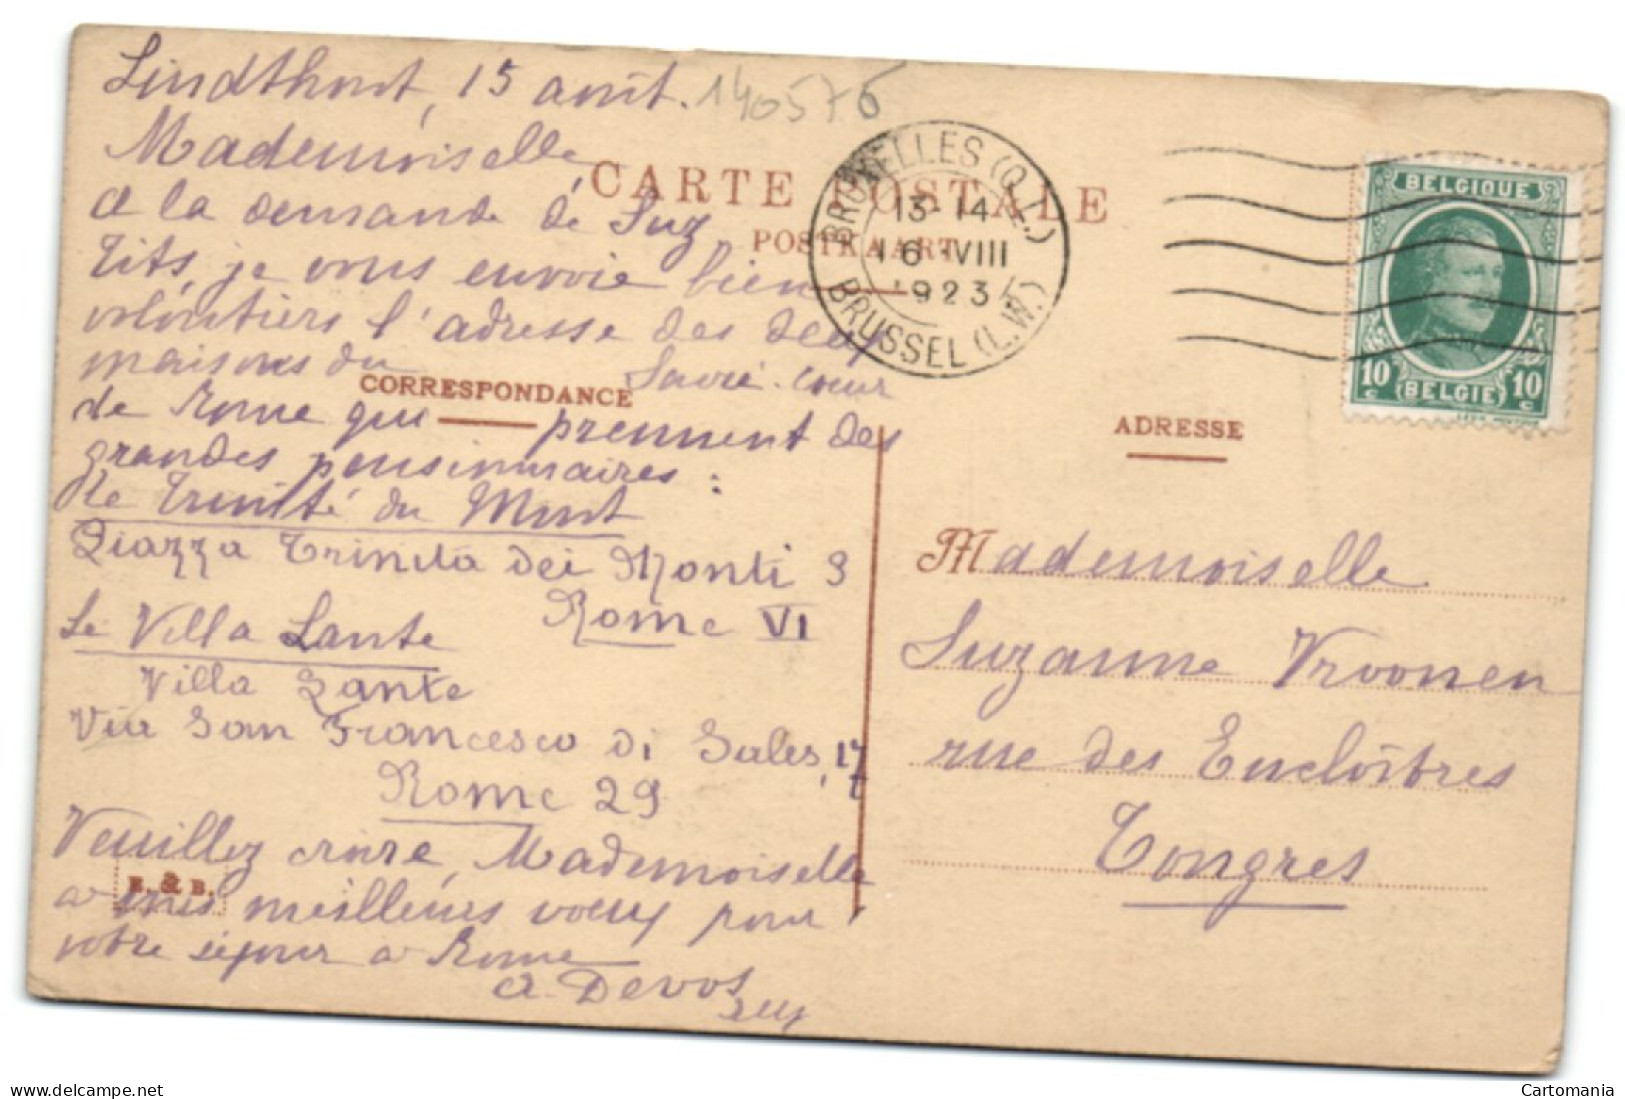 Lindthout, 15 août. 140576
Mademoiselle,
A la demande de Suz
Tits, je vous envoie bien
volontiers l'adresse des deux
maisons du Sacré-Cœur
de Rome qui prennent des
grandes pensionnaires :
la Trinité du Mont
Piazza Trinità dei Monti 3
Rome VI
La Villa Lante
Villa Lante
Via San Francesco di Sales, 17
Rome 29
Veuillez croire, Mademoiselle
à mes meilleurs vœux pour
votre séjour à Rome
A Devos
CARTE POSTALE
POSTKAART
CORRESPONDANCE
E. & B.
BRUXELLES (Q.L.)
13-14
16 VIII
1923
BRUSSEL (L.W.)
BELGIQUE
10c BELGIË 10c
ADRESSE
Mademoiselle
Suzanne Vroonen
rue des Encloîtres
Tongres
Cartomania